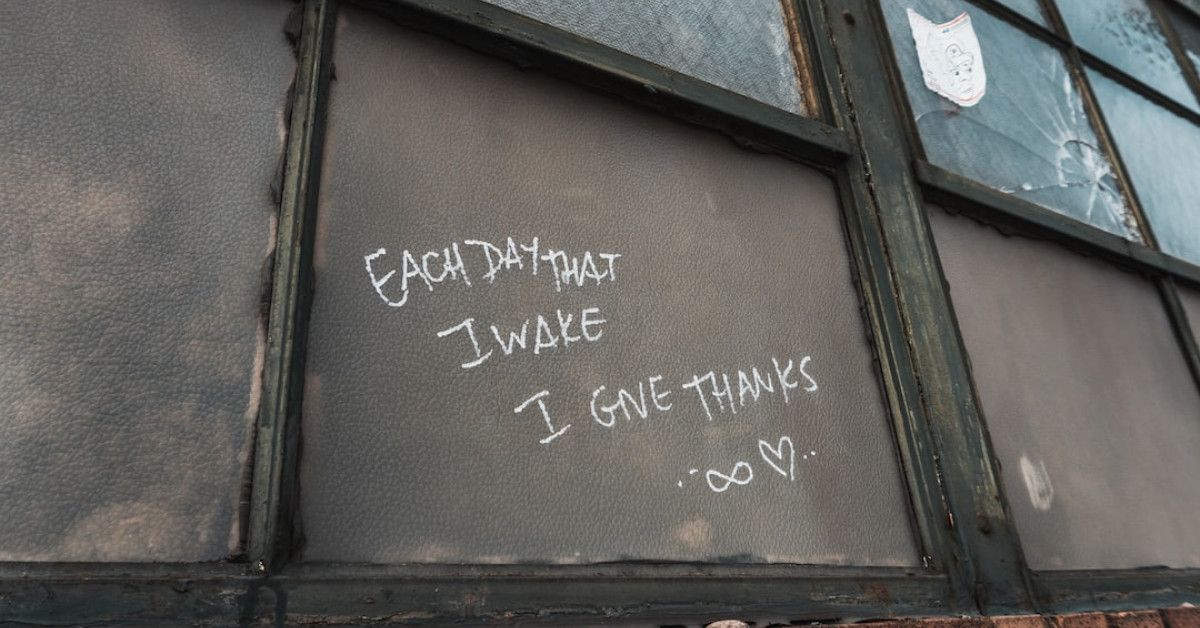 EACH DAY THAT
I WAKE
I GIVE THANKS
∞♡